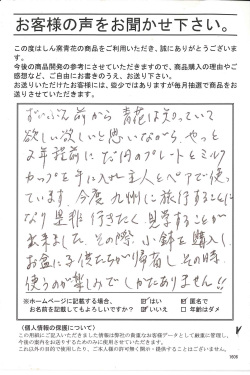 お客様の声をお聞かせ下さい。
この度はしん窯青花の商品をご利用いただき、誠にありがとうございます。
今後の商品開発の参考にさせていただきますので、商品購入の理由やご感想など、ご自由にお書きのうえ、お送り下さい。
お送りいただけたお客様には、些少ではありますが毎月抽選で商品をお送りさせていただきます。
ずいぶん前から青花は知っていて
欲しい欲しいと思いながら、やっと
2年程前に だ円のプレートとミルク
カップを手に入れ 主人とペアで使っ
ています。今度 九州に旅行することに
なり 是非 行きたく 見学することが
出来ました。その際、小鉢を購入し
お盆に子供たちが帰省し その時
使うのが楽しみでしかたありません!!
※ホームページに記載する場合、 ☑はい ☑匿名で
お名前を記載してもよろしいですか? □いいえ □年齢はダメ
《個人情報の保護について》
この用紙にご記入いただきました情報は弊社の貴重なお客様データとして厳重に管理し、
今後の案内をお送りするためのみに使用させていただきます。
これ以外の目的で使用したり、ご本人様の許可無く開示・提供することはございません。
1606